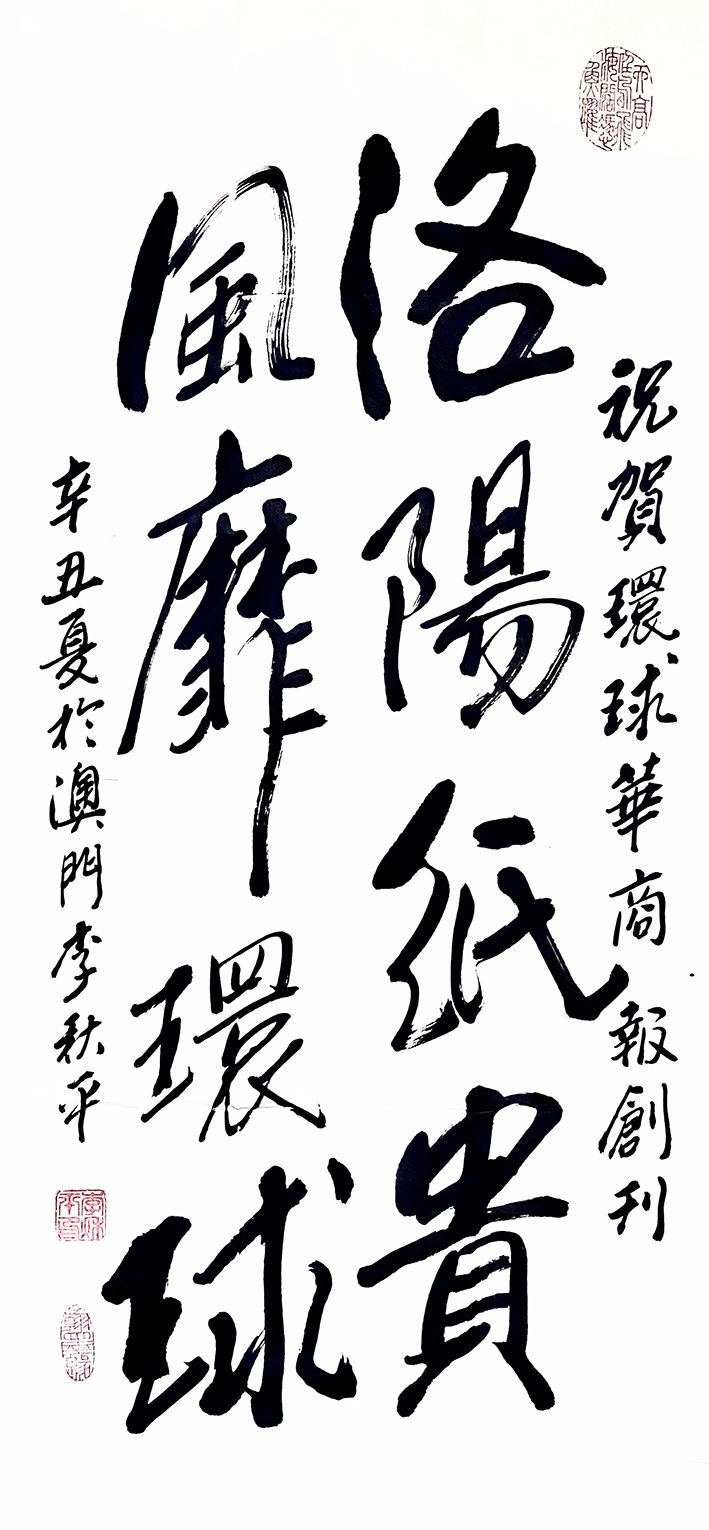 祝賀環球華商報創刊
洛陽紙貴
風靡環球
辛丑夏於澳門李秋平